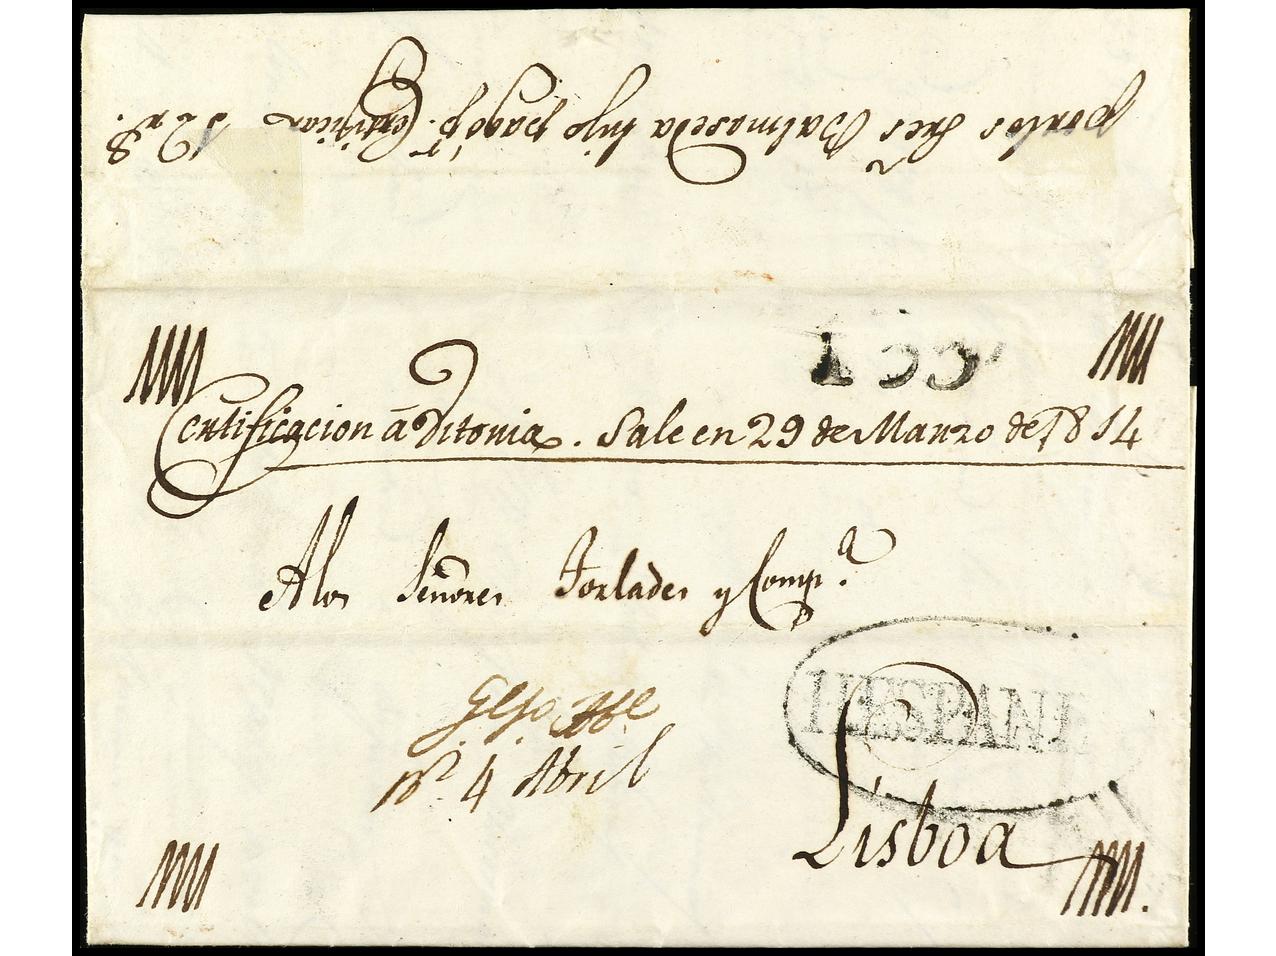 por los Sres Balmaseda hijo pagó pr. Certificar 12 rs.
155
Certificacion á Vitoria. Sale en 29 de Marzo de 1814
A los Señores Torlades y Compa.
4 Abril
HESPANH
Lisboa